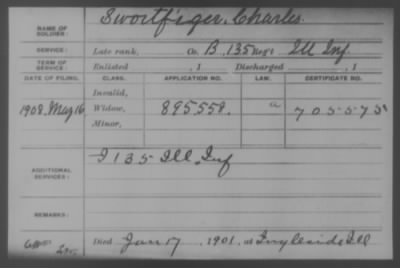 NAME OF SOLDIER: Swortfiger, Charles.
SERVICE: Late rank, Co. B, 135 Reg't Ill Inf.
TERM OF SERVICE: Enlisted , 1 Discharged , 1
DATE OF FILING. CLASS. APPLICATION NO. LAW. CERTIFICATE NO.
Invalid,
1908. May 16 Widow, 895.558. a 705575
Minor,
ADDITIONAL SERVICES: I 135 Ill. Inf
REMARKS:
Died Jan 17, 1901, at Ingleside Ill